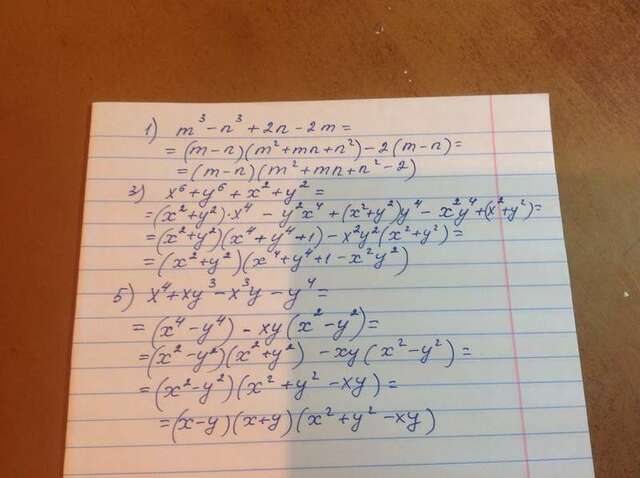 1) m³-n³+2n-2m=
=(m-n)(m²+mn+n²)-2(m-n)=
=(m-n)(m²+mn+n²-2)
3) x⁶+y⁶+x²+y²=
=(x²+y²)·x⁴-y²x⁴+(x²+y²)y⁴-x²y⁴+(x²+y²)=
=(x²+y²)(x⁴+y⁴+1)-x²y²(x²+y²)=
=(x²+y²)(x⁴+y⁴+1-x²y²)
5) x⁴+xy³-x³y-y⁴=
=(x⁴-y⁴)-xy(x²-y²)=
=(x²-y²)(x²+y²)-xy(x²-y²)=
=(x²-y²)(x²+y²-xy)=
=(x-y)(x+y)(x²+y²-xy)